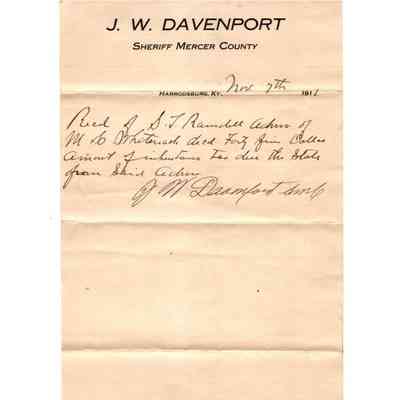 J. W. DAVENPORT
SHERIFF MERCER COUNTY
HARRODSBURG, KY. Nov 7th 1911
Recd of S. T. Randell Admr of
M C Whitenack decd Forty five Dollars
Amount of inheritance tax due the State
from Said Admr
J W Davenport